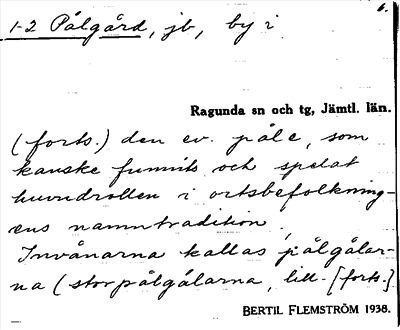 6.
1-2 Pålgård, jb, by i
Ragunda sn och tg, Jämtl. län.
(forts.) den ev. påle, som
kanske funnits och spelat
huvudrollen i ortsbefolkning-
ens namntradition.
Invånarna kallas pålgålar-
na (storpålgålarna, lill- [forts.)
BERTIL FLEMSTRÖM 1938.